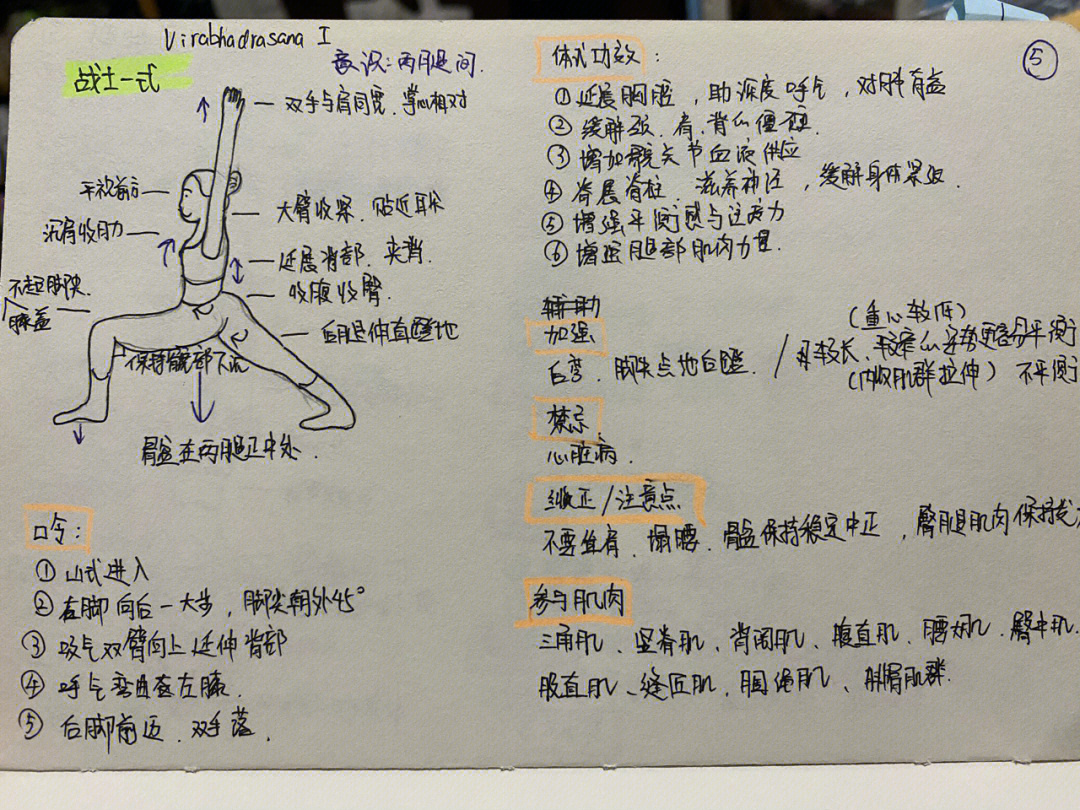 Virabhadrasana I
战士一式
意识:两腿间.
双手与肩同宽.掌心相对
平视前方
大臂收紧.贴近耳朵
沉肩收肋
延展背部.夹背.
收腹收臀.
不超脚尖.
膝盖
后腿伸直蹬地
保持髋部下沉
骨盆在两腿正中处.
口令:
①山式进入
②右脚向后一大步,脚尖朝外45°
③吸气双臂向上延伸背部
④呼气弯曲左膝.
⑤后脚前迈.双手落.
⑤
体式功效:
①延展胸腔,助深度呼气,对肺有益
②缓解颈、肩、背的僵硬.
③增加髋关节血液供应
④脊展脊柱、滋养神经,缓解身体紧张.
⑤增强平衡感与注意力
⑥增强腿部肌肉力量.
辅助
加强
后弯.脚尖点地后蹬. /
(重心较低)
(内收肌群拉伸) 不平衡
禁忌
心脏病.
纠正/注意点
不要耸肩、塌腰.骨盆保持稳定中正,臀腿肌肉保持
参与肌肉
三角肌、竖脊肌、背阔肌、腹直肌、腰大肌、臀中肌.
股直肌、缝匠肌、腘绳肌、腓肠肌群.